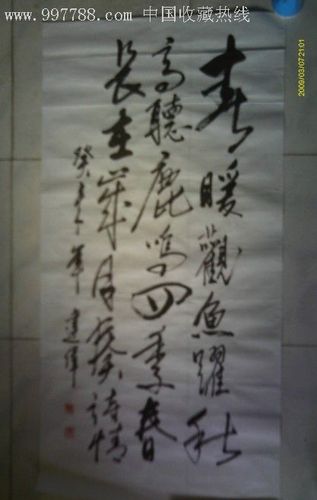 www.997788.com 中国收藏热线
2009/03/07 21:01
春暖觀魚躍秋
高聽鹿鳴四季春
長在歲月詩情
癸未年建